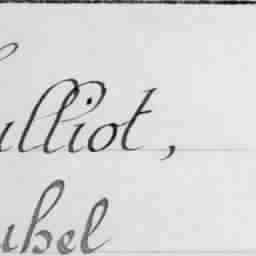 ulliot,
uhel